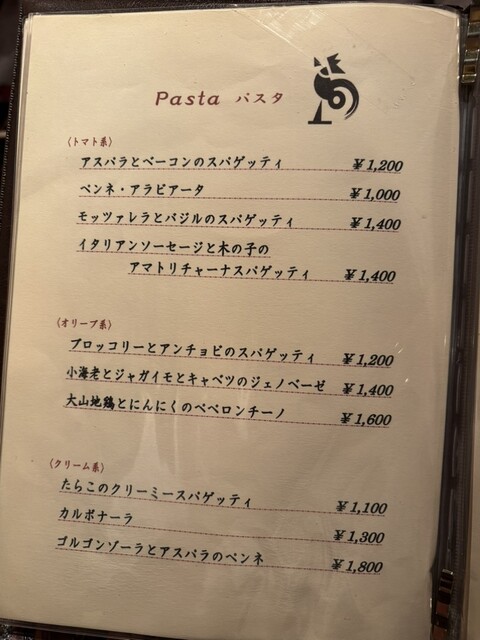 Pasta パスタ
〈トマト系〉
アスパラとベーコンのスパゲッティ ￥1,200
ペンネ・アラビアータ ￥1,000
モッツァレラとバジルのスパゲッティ ￥1,400
イタリアンソーセージと木の子の
アマトリチャーナスパゲッティ ￥1,400
〈オリーブ系〉
ブロッコリーとアンチョビのスパゲッティ ￥1,200
小海老とジャガイモとキャベツのジェノベーゼ ￥1,400
大山地鶏とにんにくのペペロンチーノ ￥1,600
〈クリーム系〉
たらこのクリーミースパゲッティ ￥1,100
カルボナーラ ￥1,300
ゴルゴンゾーラとアスパラのペンネ ￥1,800